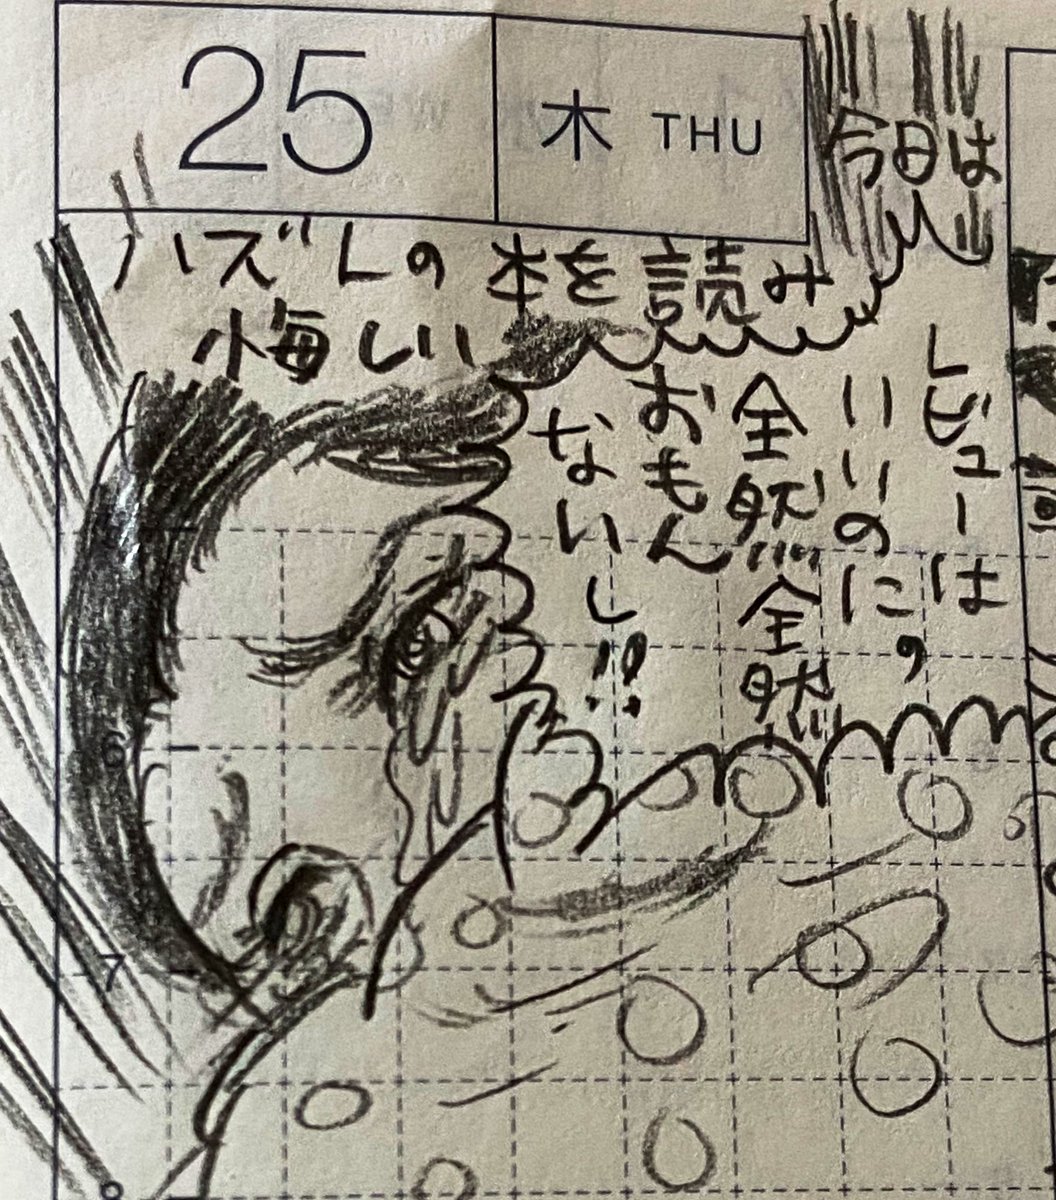 25
木 THU
今日は
ハズレの本を読み
悔しい
レビューは
いいのに,
全然全然
おもん
ないし!!
6
7